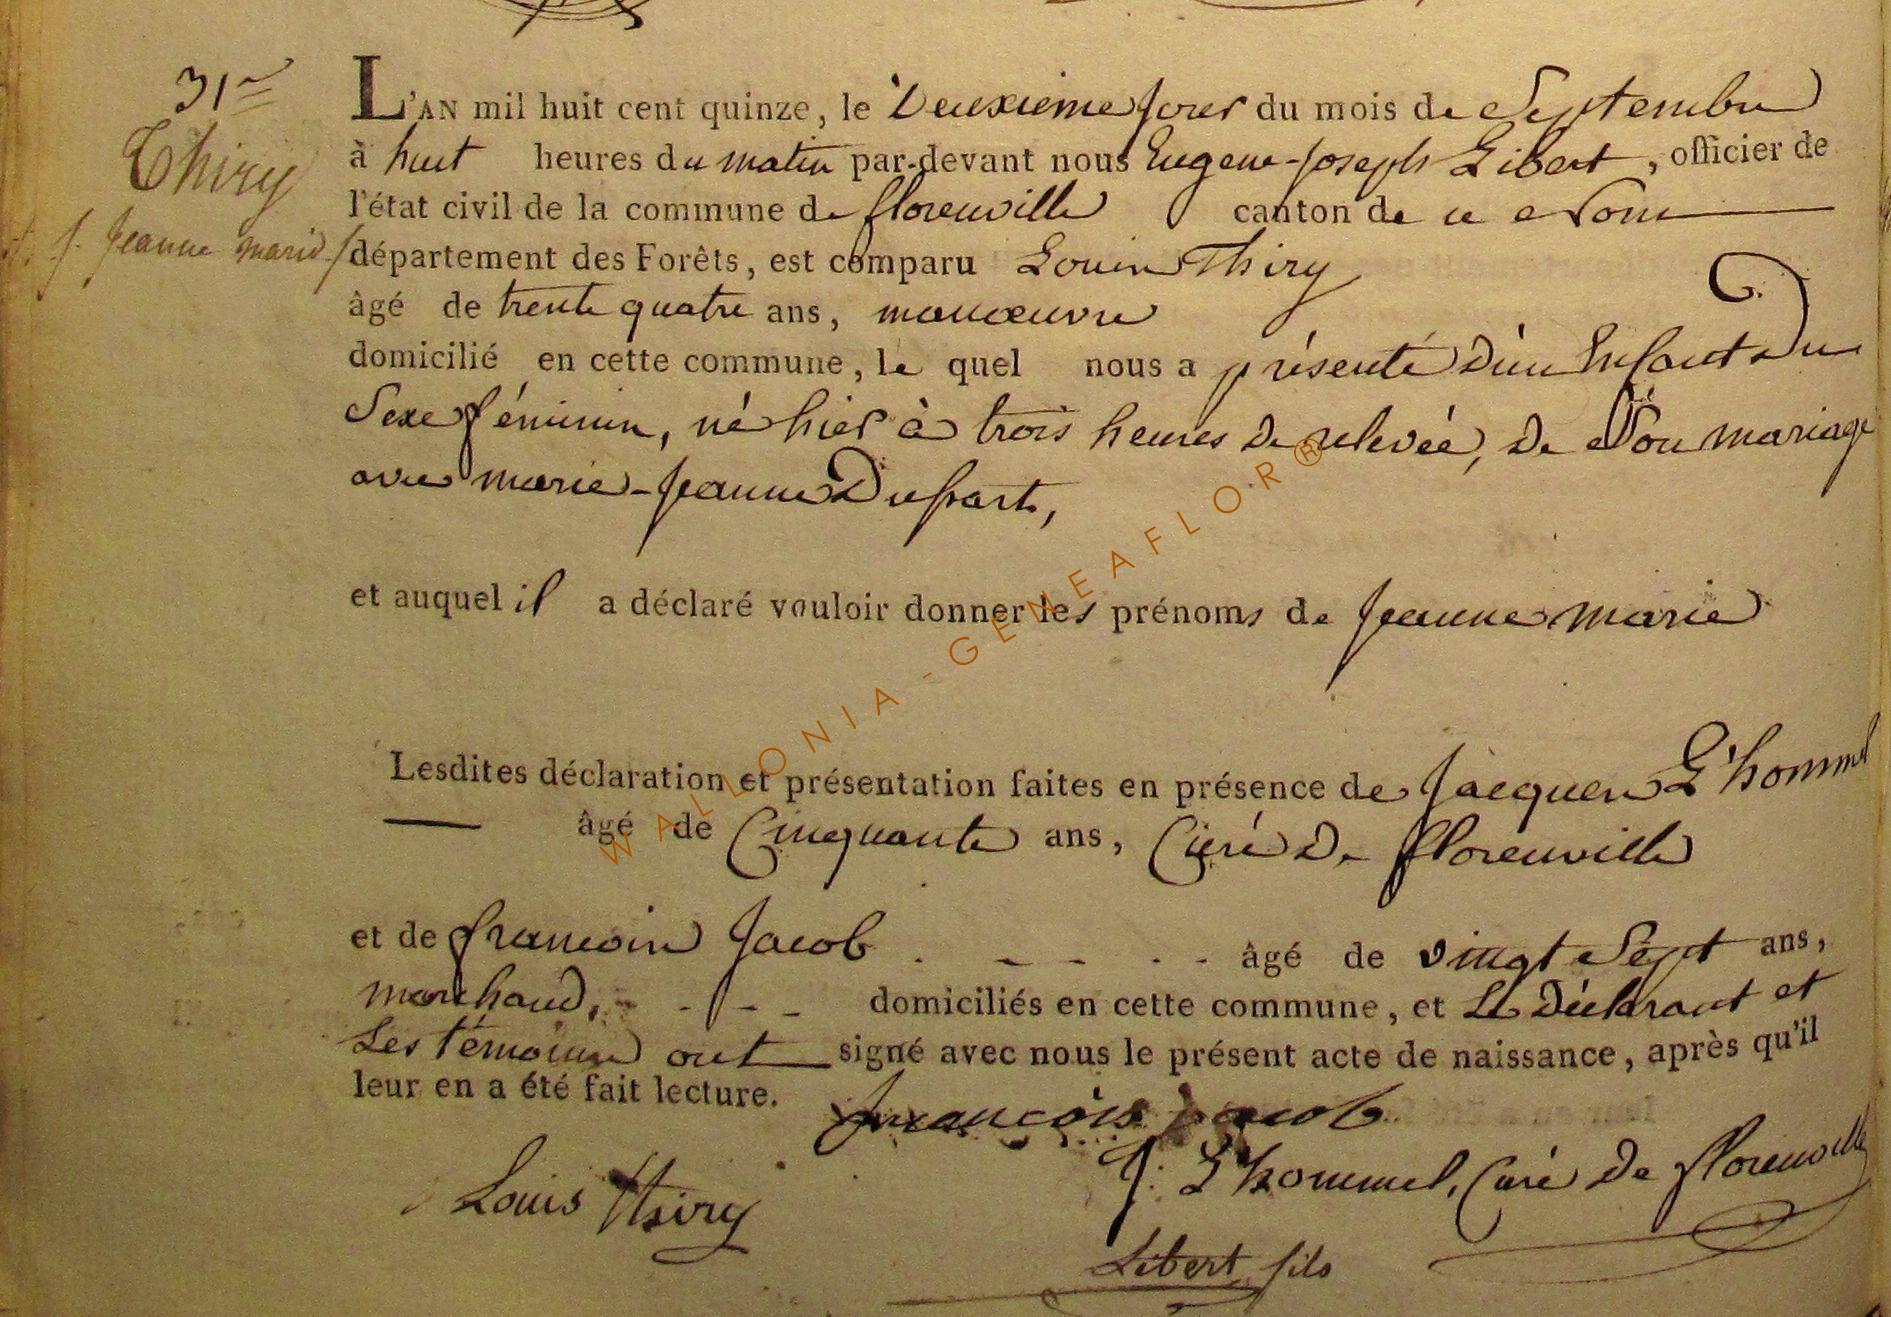 31me
Thiry
J. Jeanne marie
L'AN mil huit cent quinze, le Deuxieme Jour du mois de Septembre
à huit heures du matin par-devant nous Eugene-Joseph Libert, officier de
l'état civil de la commune de florenville canton de ce Nom
département des Forêts, est comparu Louis Thiry
âgé de trente quatre ans, manœuvre
domicilié en cette commune, le quel nous a présenté d'un Enfant du
Sexe féminin, né hier à trois heures de relevée, de Son mariage
avec marie-Jeanne Dufsart,
et auquel il a déclaré vouloir donner les prénoms de Jeanne marie
Lesdites déclaration et présentation faites en présence de Jacques L'hommel
âgé de Cinquante ans, Curé de florenville
et de francois Jacob âgé de vingt Sept ans,
marchand, domiciliés en cette commune, et Le Déclarant et
Les témoins ont signé avec nous le présent acte de naissance, après qu'il
leur en a été fait lecture.
francois jacob
J. L'hommel, Curé de florenville
Louis Thiry
Libert fils
WALLONIA-GENEAFLOR®